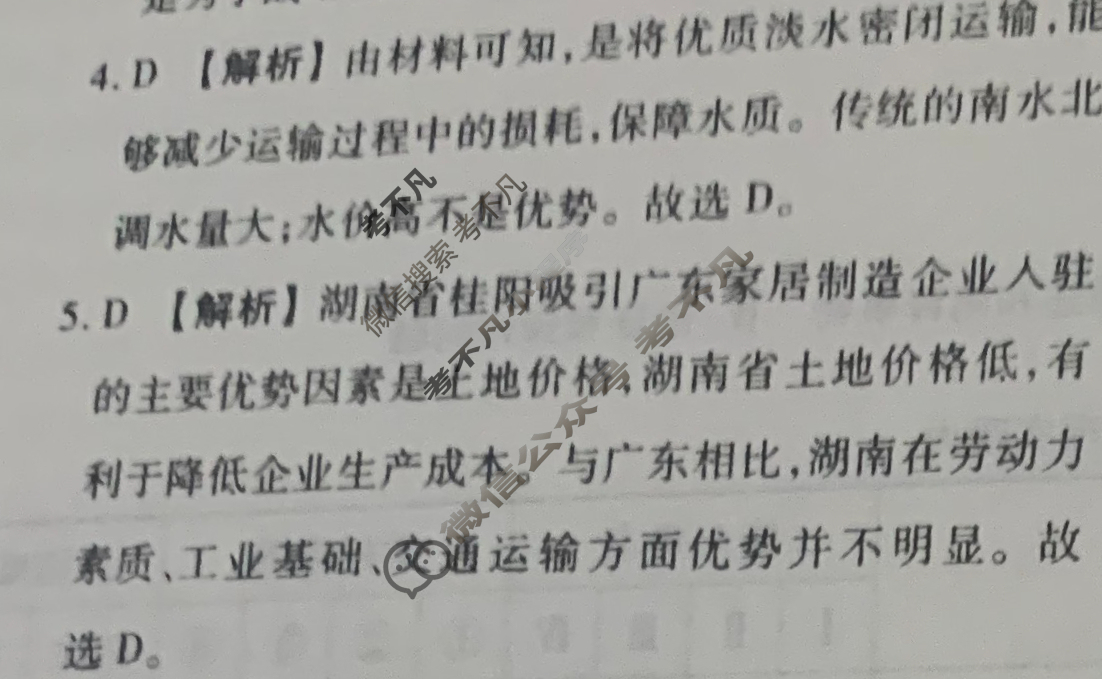 4. D 【解析】由材料可知,是将优质淡水密闭运输,能
够减少运输过程中的损耗,保障水质。传统的南水北
调水量大;水价高不是优势。故选 D。
5. D 【解析】湖南省桂阳吸引广东家居制造企业入驻
的主要优势因素是土地价格,湖南省土地价格低,有
利于降低企业生产成本。与广东相比,湖南在劳动力
素质、工业基础、交通运输方面优势并不明显。故
选 D。
考不凡
微信搜索 考不凡
考不凡
微信公众号 考不凡